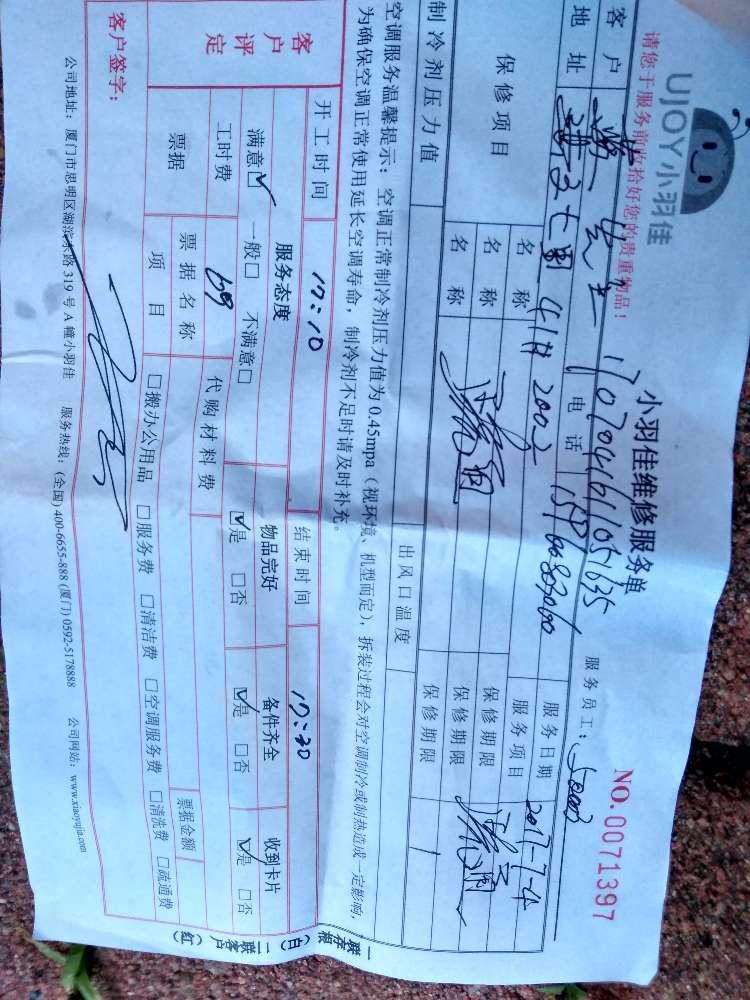 UJOY小羽佳
小羽佳维修服务单
NO.0071397
请您于服务前收拾好您的贵重物品！
17070416110051635
服务员工：
客户
电话
服务日期 2017-7-4
地址 41# 2002
服务项目
保修项目
名称
保修期限
名称
保修期限
名称
保修期限
制冷剂压力值
出风口温度
空调服务温馨提示：空调正常制冷剂压力值为0.45mpa（视环境、机型而定），拆装过程会对空调制冷或制热造成一定影响，
为确保空调正常使用延长空调寿命，制冷剂不足时请及时补充。
客户评定
开工时间 17:10
结束时间 17:30
服务态度
物品完好
备件齐全
收到卡片
满意☑ 一般□ 不满意□
☑是 □否
☑是 □否
☑是 □否
工时费
代购材料费
票据
票据名称
票据金额
项目
□搬办公用品 □服务费 □清洁费 □空调服务费 □清洗费 □疏通费
客户签字：
公司地址：厦门市思明区湖滨东路319号A幢小羽佳 服务热线：(全国) 400-6655-888 (厦门) 0592-5178888 公司网站：www.xiaoyujia.com
一联存根（白） 二联客户（红）